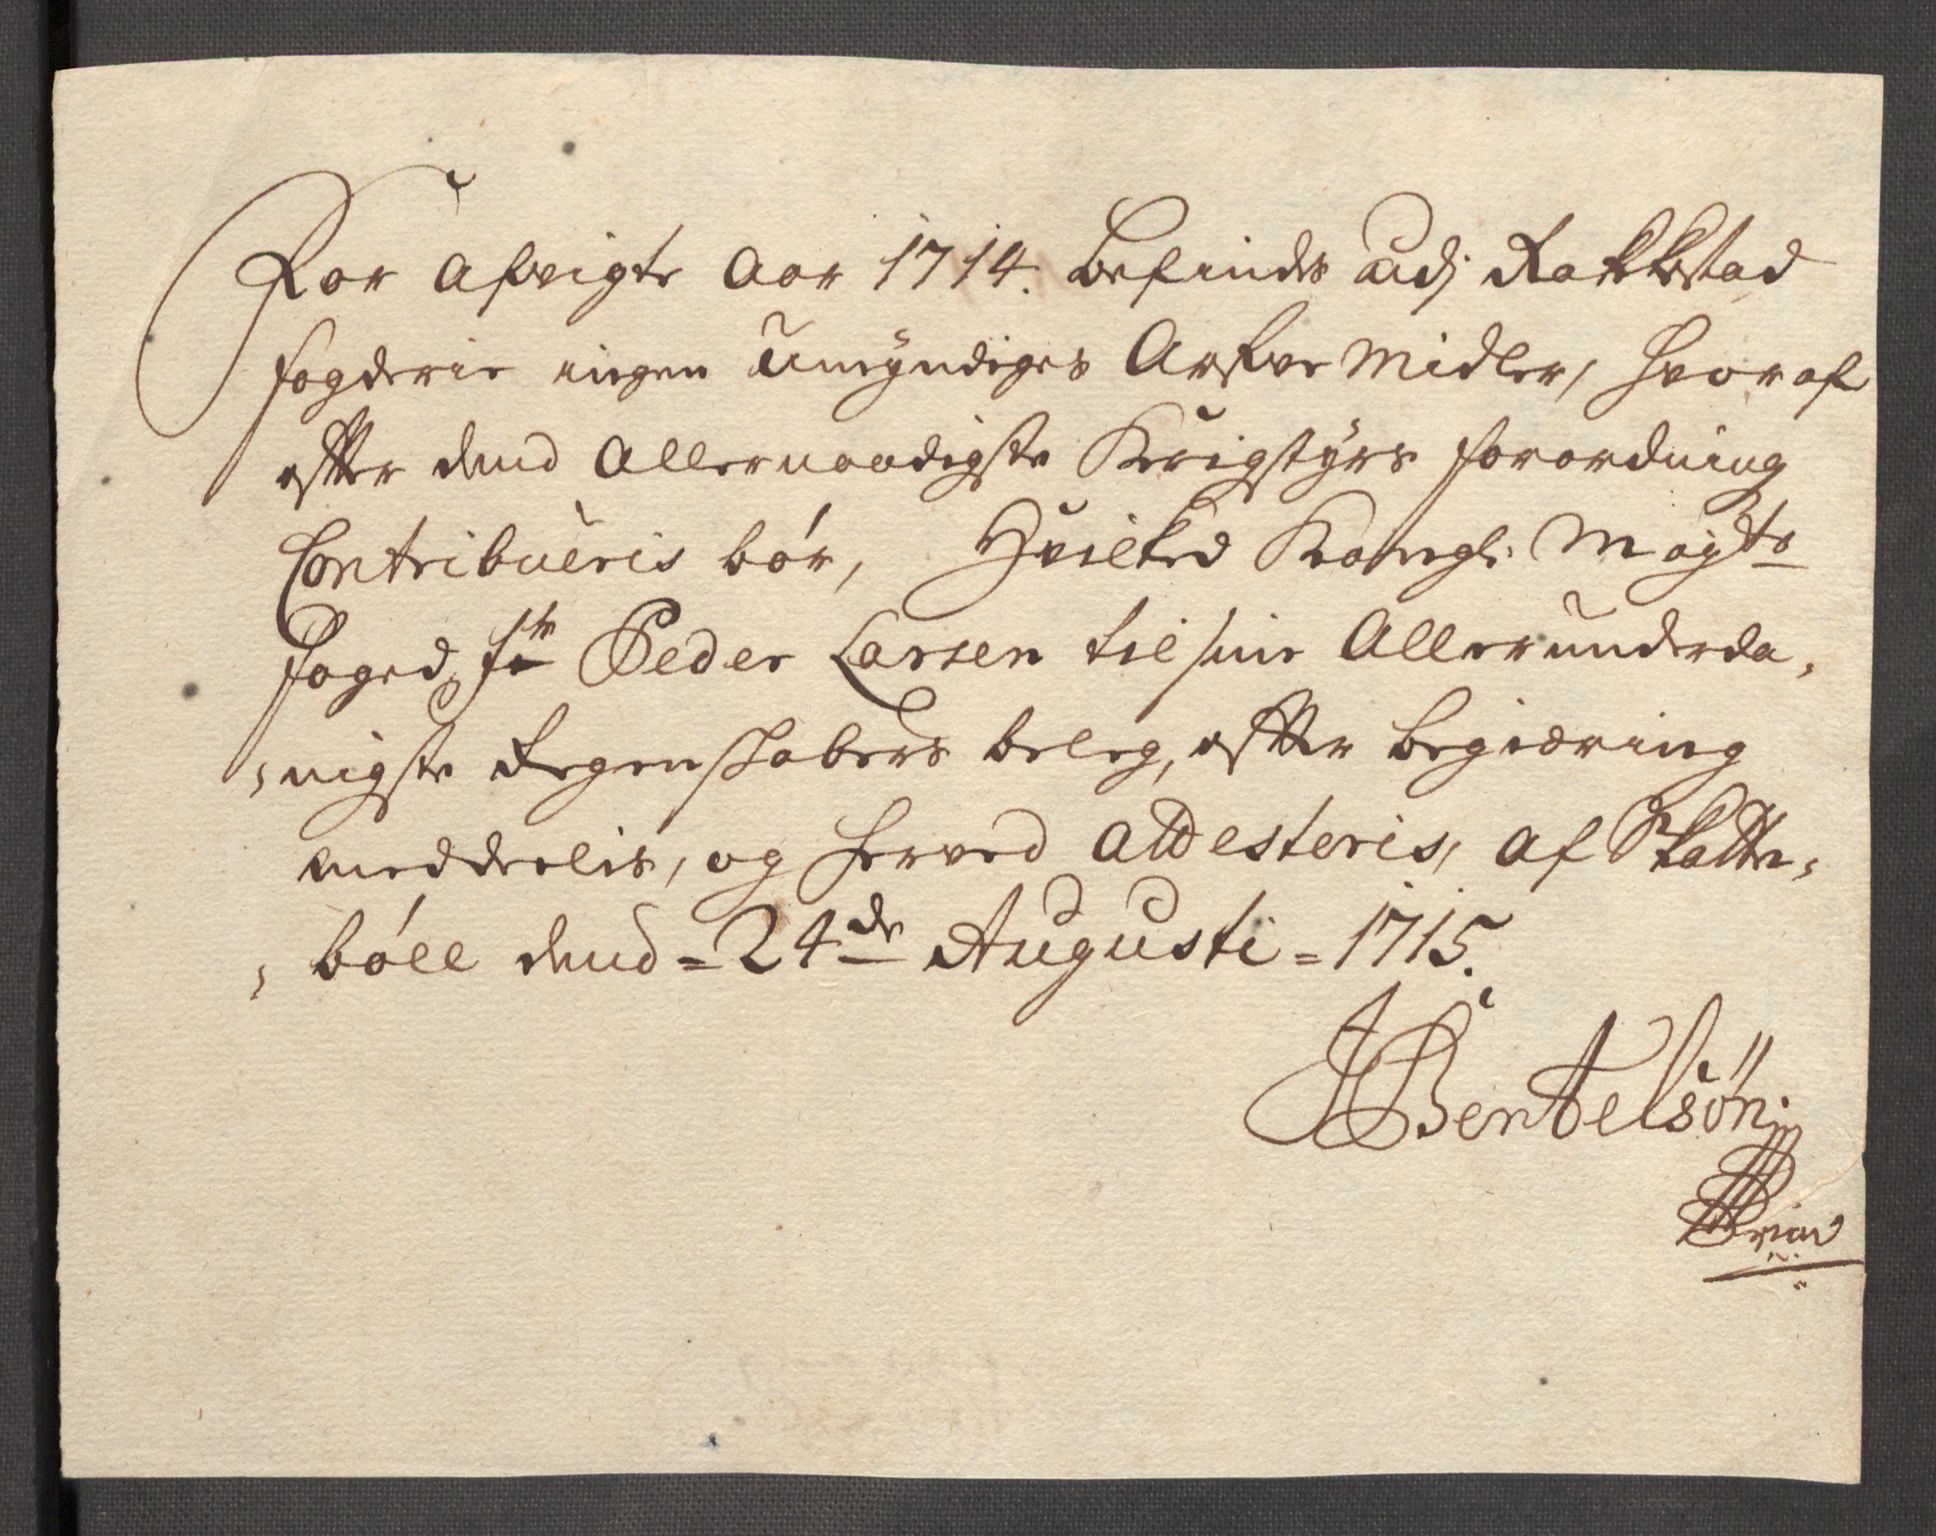 For afvigte Aar 1714. befindes udj Rakkestad
fogderie ingen Umyndiges Arfve Midler, hvoraf
effter dend Allernaadigste Krigstyrs forordning
Contribueris bör, Hvilked Kongl: Mayts
foged Sr Peder Larsen til sine Allerunderda,
,nigste Regenskabers beleg, effter begiæring
meddeelis, og herved Attesteris, af Skatte,
,böll dend = 24de Augusti = 1715.
JBentelsön